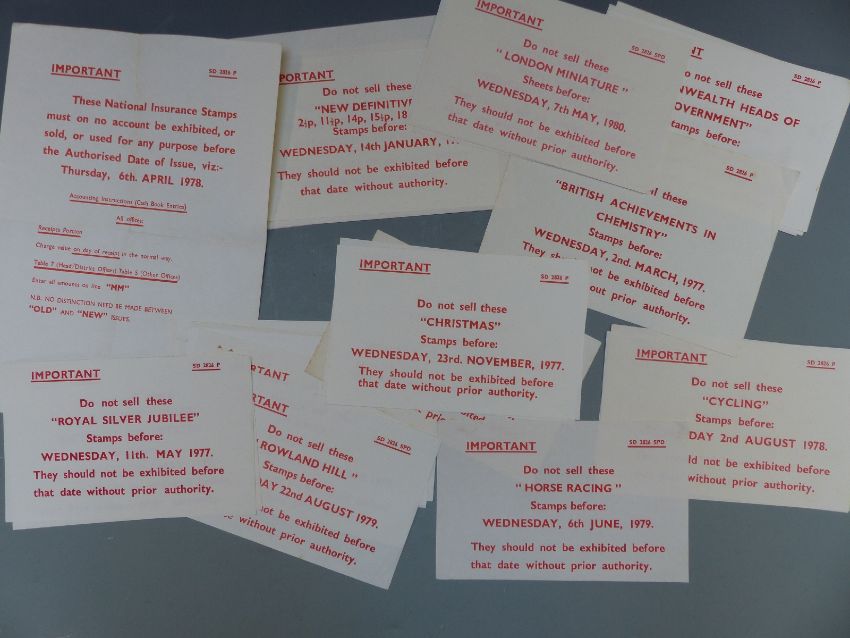 IMPORTANT
SD 2826 P
These National Insurance Stamps
must on no account be exhibited, or
sold, or used for any purpose before
the Authorised Date of Issue, viz:-
Thursday, 6th. APRIL 1978.
Accounting Instructions (Cash Book Entries)
All offices:
Receipts Portion
Charge value on day of receipt in the normal way.
Table 7 (Head/District Offices) Table 5 (Other Offices)
Enter all amounts on line "MM"
N.B. NO DISTINCTION NEED BE MADE BETWEEN
"OLD" AND "NEW" ISSUES.
PORTANT
Do not sell these
"NEW DEFINITIV
2½p, 11½p, 14p, 15½p, 18
Stamps before:
WEDNESDAY, 14th JANUARY,
They should not be exhibited before
that date without authority.
IMPORTANT
SD 2826 SPD
Do not sell these
"LONDON MINIATURE"
Sheets before:
WEDNESDAY, 7th MAY, 1980.
They should not be exhibited before
that date without prior authority.
NT
SD 2826 P
o not sell these
NWEALTH HEADS OF
OVERNMENT"
tamps before:
SD 2826 P
l these
"BRITISH ACHIEVEMENTS IN
CHEMISTRY"
Stamps before:
WEDNESDAY, 2nd. MARCH, 1977.
They sh not be exhibited before
hout prior authority.
IMPORTANT
SD 2826 P
Do not sell these
"CHRISTMAS"
Stamps before:
WEDNESDAY, 23rd. NOVEMBER, 1977.
They should not be exhibited before
that date without prior authority.
IMPORTANT
SD 2826 P
Do not sell these
"CYCLING"
Stamps before:
DAY 2nd AUGUST 1978.
ld not be exhibited before
without prior authority.
IMPORTANT
SD 2826 P
Do not sell these
"ROYAL SILVER JUBILEE"
Stamps before:
WEDNESDAY, 11th. MAY 1977.
They should not be exhibited before
that date without prior authority.
RTANT
RTANT
SD 2826 SPD
Do not sell these
ROWLAND HILL"
Stamps before:
DAY 22nd AUGUST 1979.
not be exhibited before
hout prior authority.
prior authority.
IMPORTANT
SD 2826 SPD
Do not sell these
"HORSE RACING"
Stamps before:
WEDNESDAY, 6th JUNE, 1979.
They should not be exhibited before
that date without prior authority.